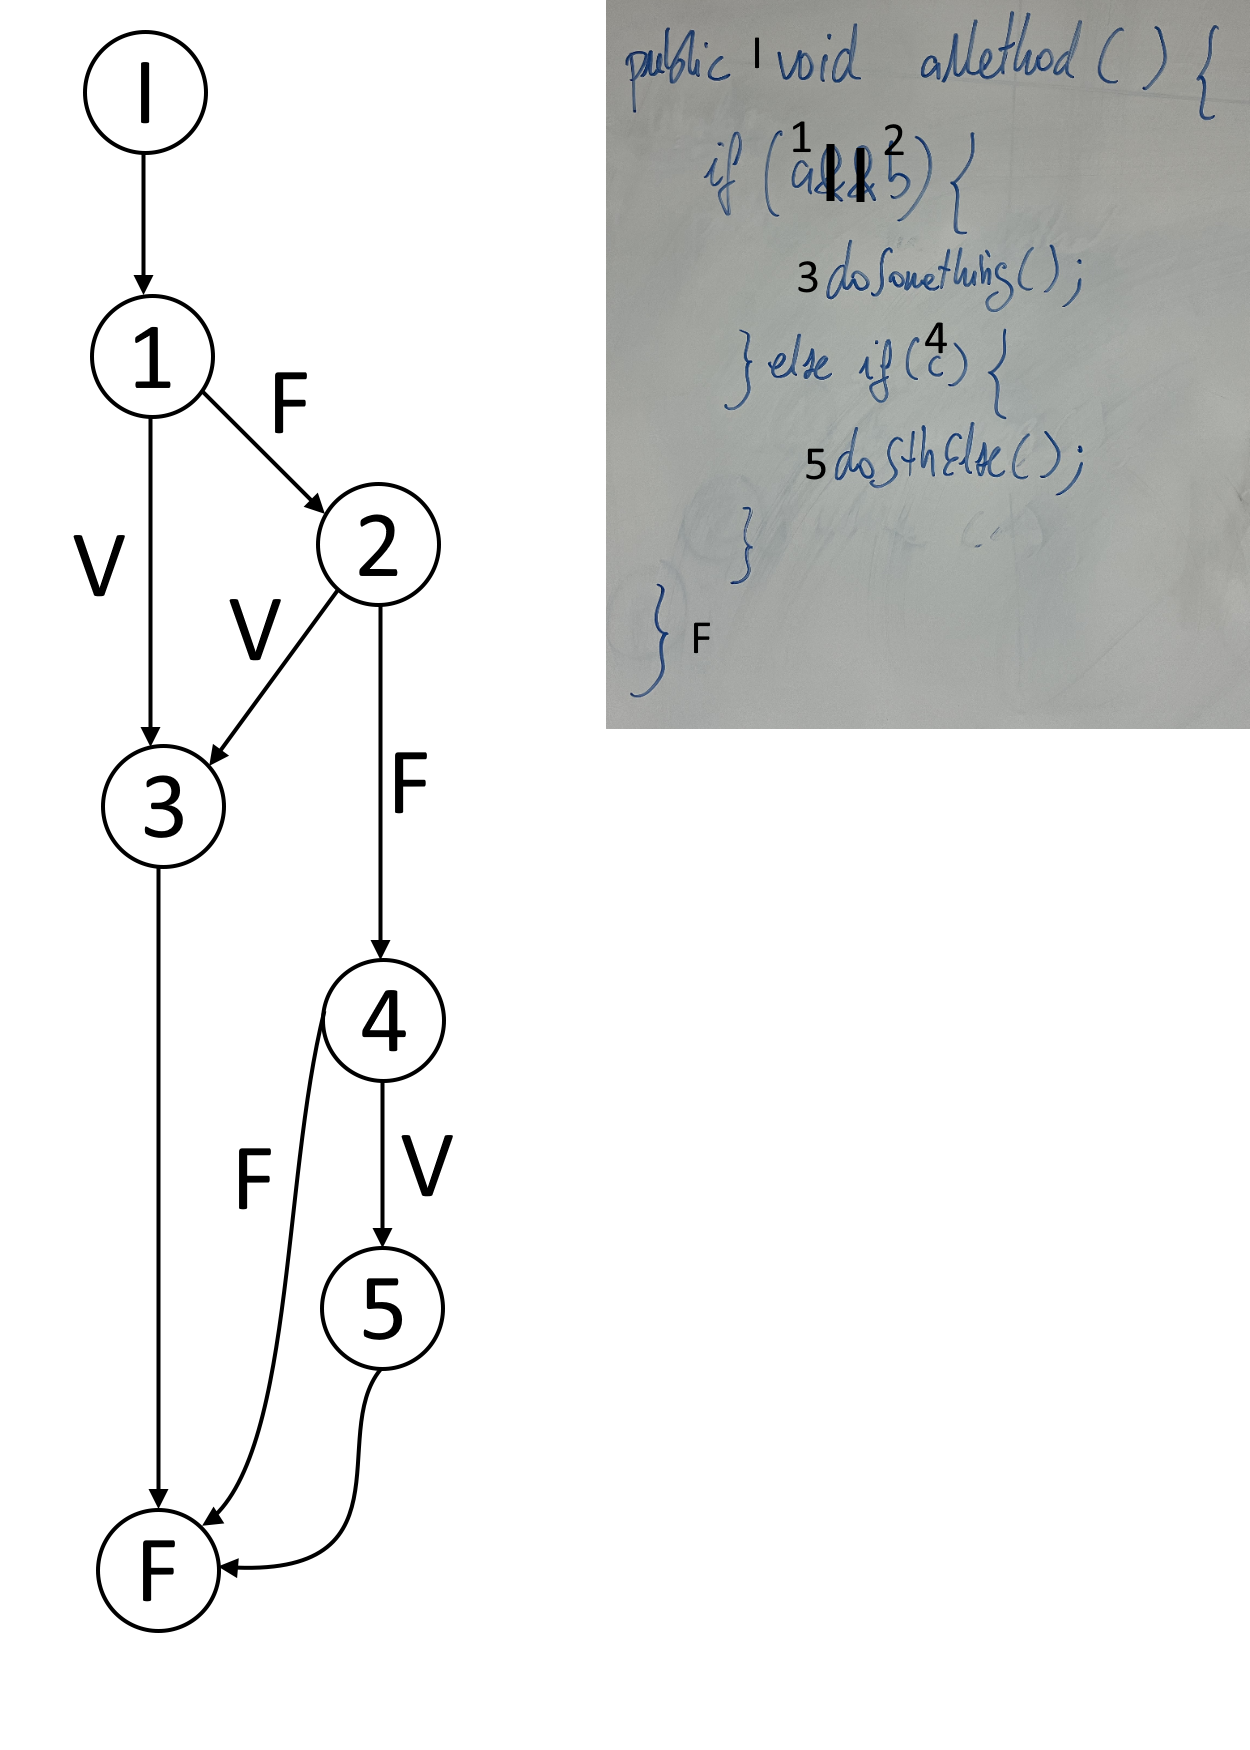 I
1
F
V
2
V
F
3
4
F
V
5
F
public I void aMethod () {
1 2
if (a||b) {
3 doSomething();
4
} else if (c) {
5 doSthElse();
}
} F